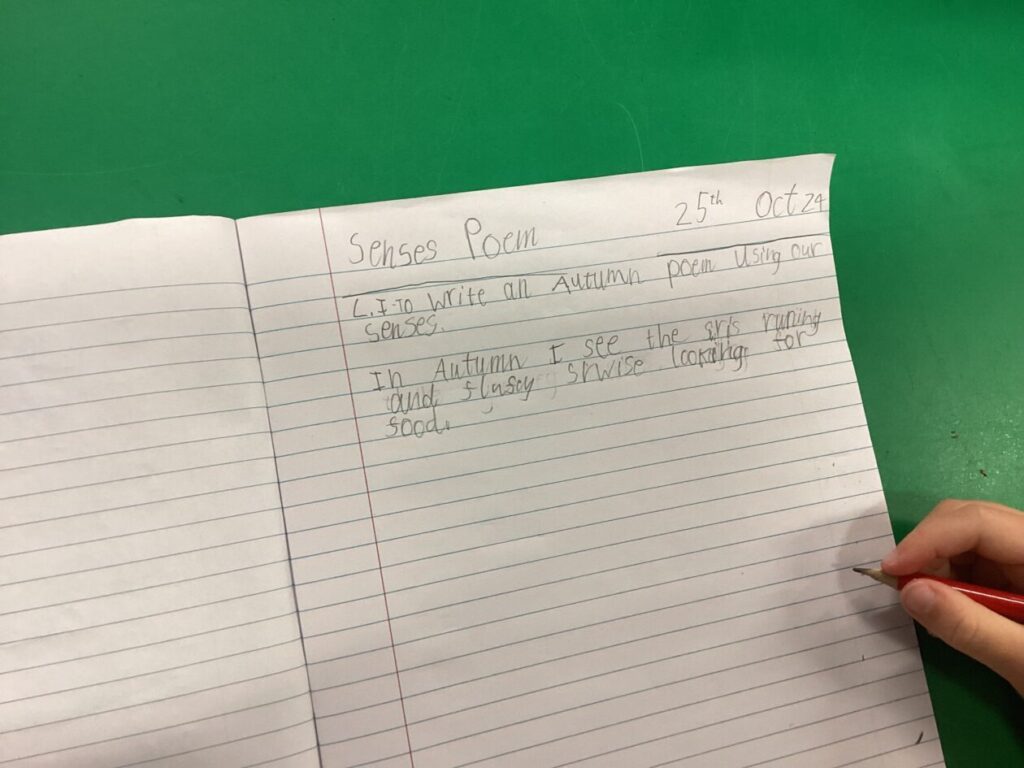 Senses Poem 25th Oct 24
L.I-To write an Autumn poem using our
senses.
In Autumn I see the runing
and looking for
sood.